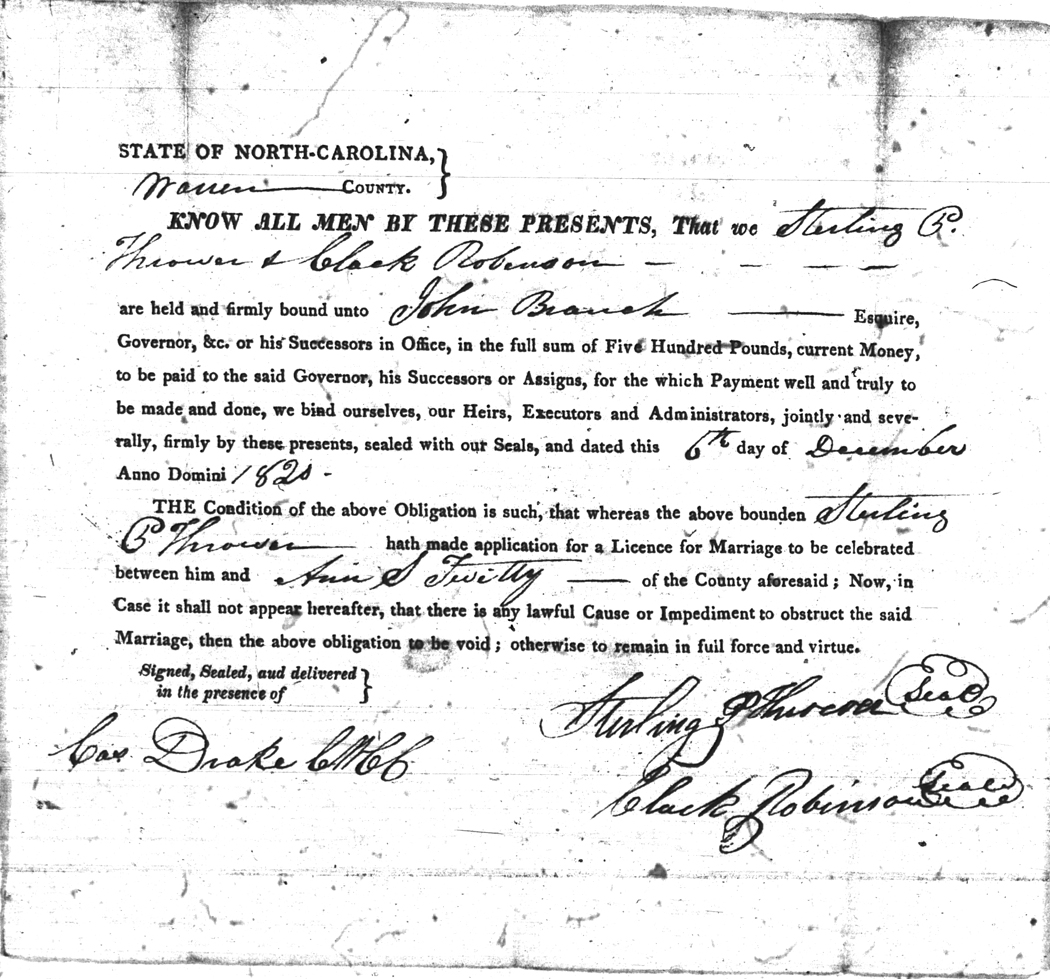 STATE OF NORTH-CAROLINA, }
Warren COUNTY.
KNOW ALL MEN BY THESE PRESENTS, That we Sterling P.
Thrower & Clack Robinson — — — —
are held and firmly bound unto John Branch — Esquire,
Governor, &c. or his Successors in Office, in the full sum of Five Hundred Pounds, current Money,
to be paid to the said Governor, his Successors or Assigns, for the which Payment well and truly to
be made and done, we bind ourselves, our Heirs, Executors and Administrators, jointly and seve-
rally, firmly by these presents, sealed with our Seals, and dated this 6th day of December
Anno Domini 1820 -
THE Condition of the above Obligation is such, that whereas the above bounden Sterling
P Thrower hath made application for a Licence for Marriage to be celebrated
between him and Ann S Twitty — of the County aforesaid; Now, in
Case it shall not appear hereafter, that there is any lawful Cause or Impediment to obstruct the said
Marriage, then the above obligation to be void; otherwise to remain in full force and virtue.
Signed, Sealed, aud delivered }
in the presence of
Sterling P Thrower Seal
Cas Drake CWCC
Clack Robinson Seal